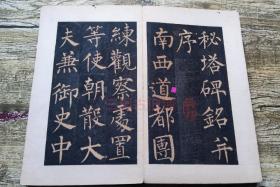 秘塔碑銘并
序
南西道都團
練觀察處置
等使朝散大
夫兼御史中